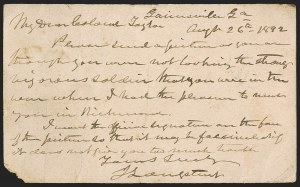 Gainesville Ga
My Dear Colonel Taylor Augt 26th 1892
Please send a picture as you are
though you were not looking the strong
vigorous soldier that you were in the
war when I had the pleasure to meet
you in Richmond.
I want the signature on the face
of the picture so that it may be
if it does not give you too much trouble
Yours Truly
J Longstreet